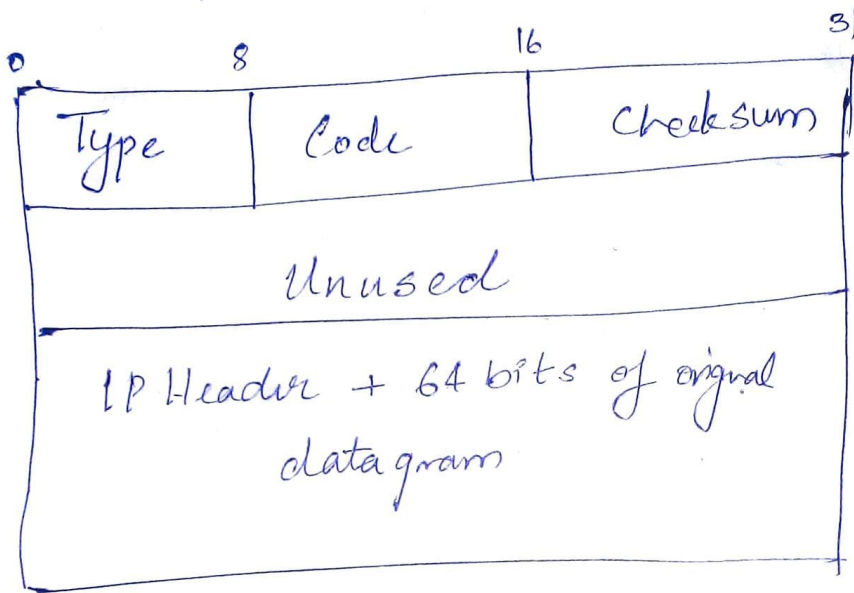 0 8 16 3
Type Code Checksum
Unused
IP Header + 64 bits of orignal
datagram